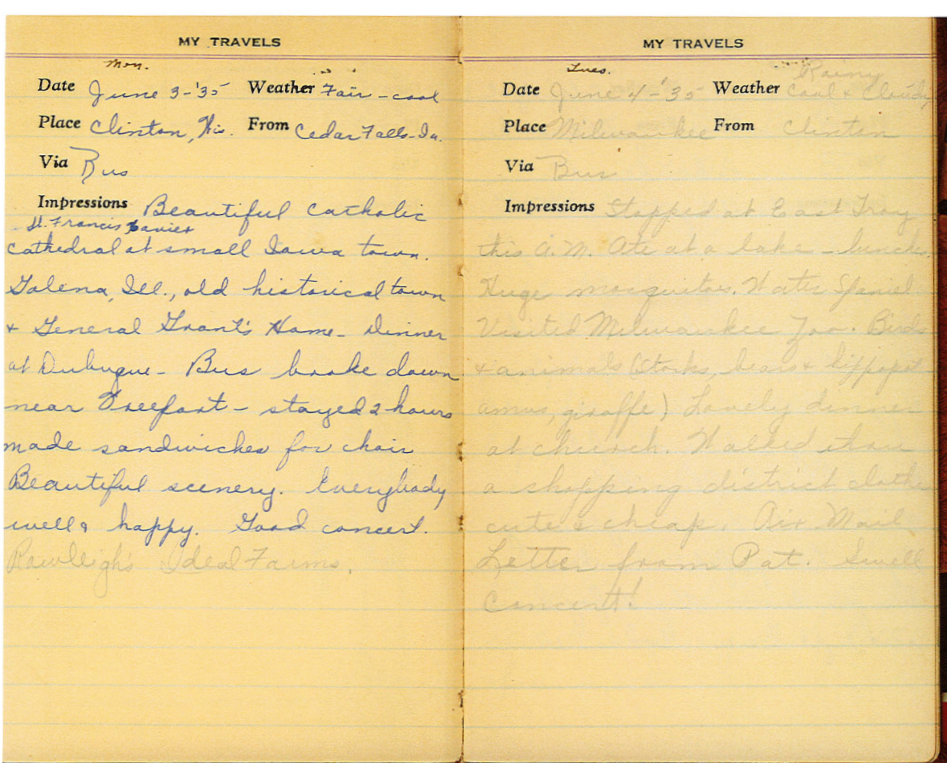 MY TRAVELS
Mon.
Date June 3-'35 Weather Fair - cool
Place Clinton, Wis. From Cedar Falls - Ia.
Via Bus
Impressions Beautiful catholic
St. Francis Xavier
cathedral at small Iowa town.
Galena, Ill., old historical town
& General Grant's Home - Dinner
at Dubuque - Bus broke down
near Freeport - stayed 2 hours
made sandwiches for choir
Beautiful scenery. Everybody
well & happy. Good concert.
Rawleigh's Ideal Farms.
MY TRAVELS
Tues.
Rainy
Date June 4-'35 Weather Cool & Cloudy
Place Milwaukee From Clinton
Via Bus
Impressions Stopped at East Troy
this A.M. Ate at a lake - lunch.
Huge mosquitos. Water
Visited Milwaukee Zoo. Birds
& animals (storks, bears & hippopot
amus, giraffe) Lovely dinner
at church. Walked thru
a shopping district clothes
cute & cheap. Air Mail
Letter from Pat. Swell
Concert!